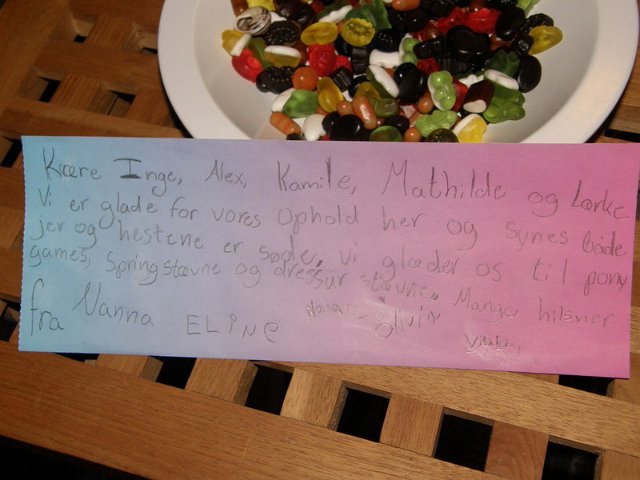 Kære Inge, Alex, Kamile, Mathilde og Lærke
Vi er glade for vores ophold her og synes både
jer og hestene er søde, vi glæder os til pony
games, Springstævne og dressur stævne. Mange hilsner
fra Nanna ELINE Naja Olivia